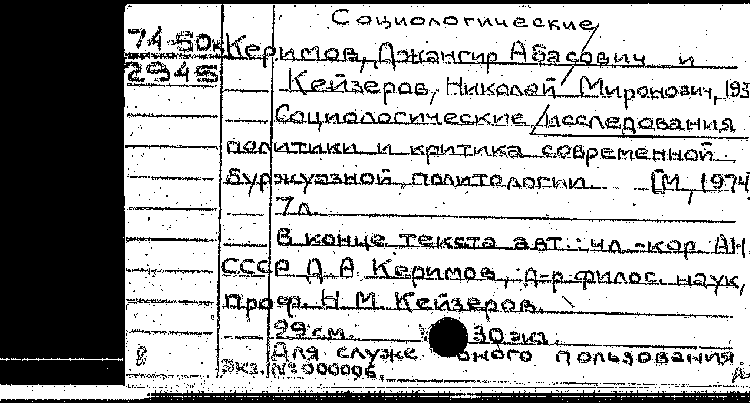 Социологические
74-50
2945
Керимов, Джангир Абасович и
Кейзеров, Николай Миронович, 193
Социологические исследования
политики и критика современной
буржуазной политологии. [М., 1974
7 л.
В конце текста авт.: чл.-кор. АН
СССР Д. А. Керимов, д-р филос. наук,
проф. Н. М. Кейзеров.
29 см. 30 экз.
Для служебного пользования.
Экз. № 000006.